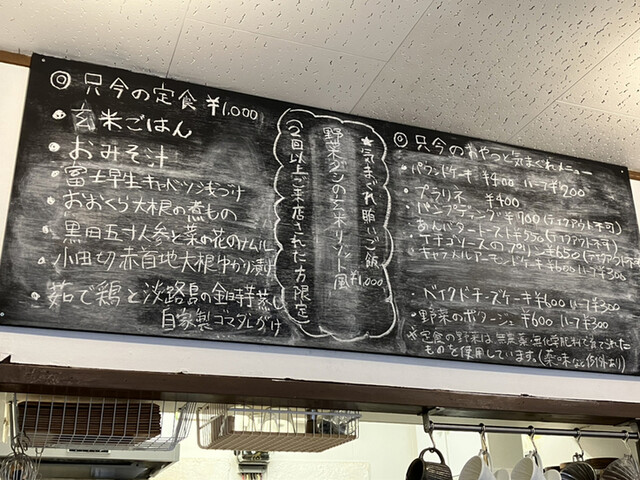 ◎只今の定食 ¥1,000
・玄米ごはん
・おみそ汁
・富士早生キャベツ浅づけ
・おおくら大根の煮もの
・黒田五寸人参と菜の花のナムル
・小田切赤首地大根ゆかり漬け
・茹で鶏と淡路島の金時芋蒸し
自家製ゴマダレがけ
★気まぐれ賄いご飯 ¥1,000
野菜ダシの玄米リゾット風
2回以上ご来店された方限定
◎只今のおやつと気まぐれメニュー
・パウンドケーキ ¥400 ハーフ¥200
・プラリネ ¥400
・パンプディング¥700(テイクアウト不可)
・あんバタートースト¥550(テイクアウト不可)
・イチゴソースのプリン¥650(テイクアウト不可)
・キャラメルアーモンドケーキ¥600 ハーフ¥300
・ベイクドチーズケーキ¥600 ハーフ¥300
・野菜のポタージュ ¥600 ハーフ¥300
※定食の野菜は無農薬・無化学肥料で育てられた
ものを使用しています。(薬味など例外あり)